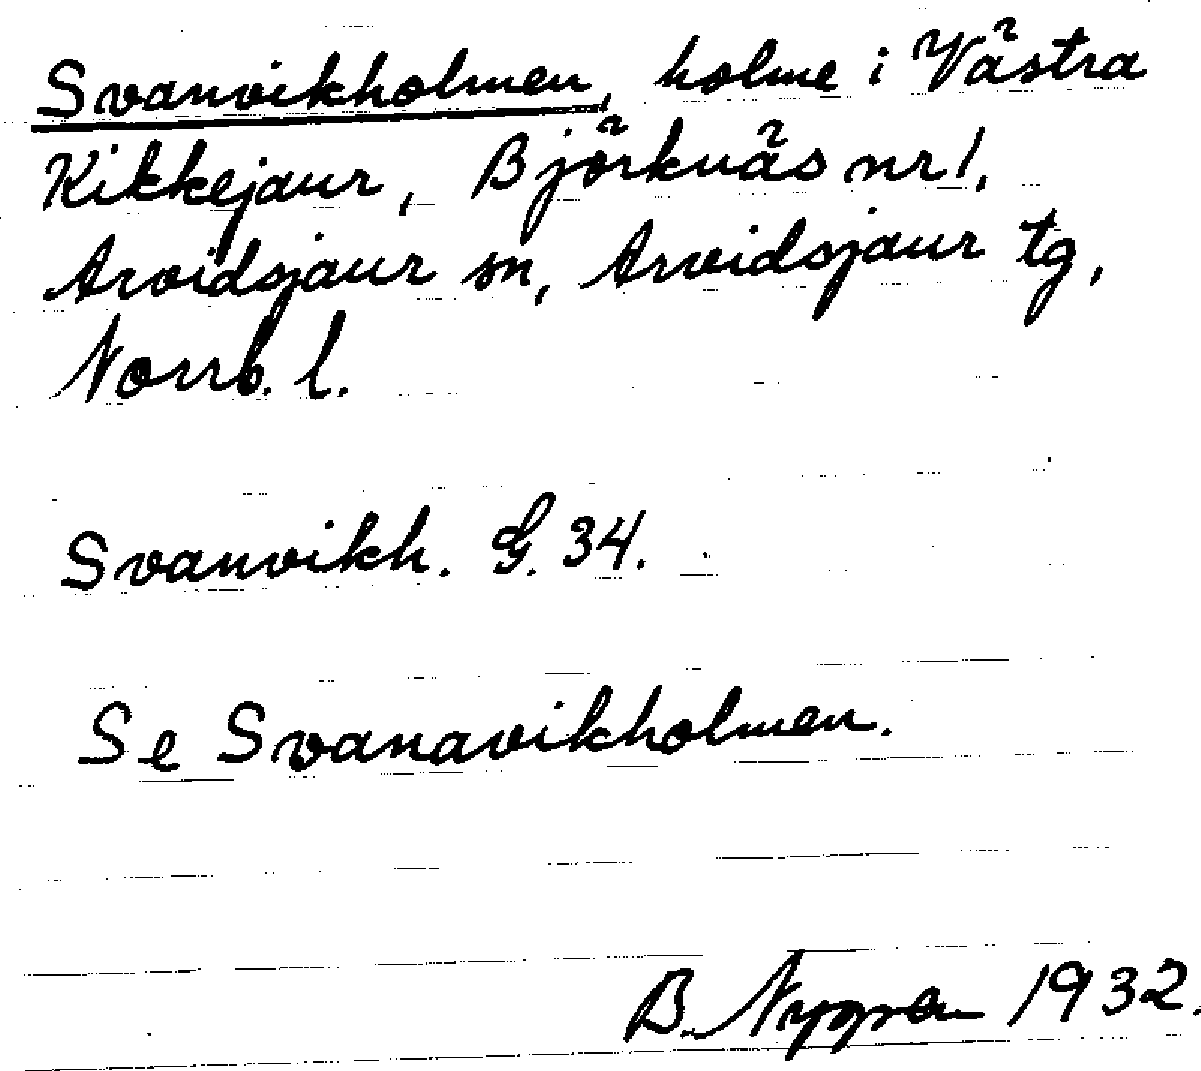 Svanvikholmen, holme i Västra
Kikkejaur, Björknäs nr 1,
Arvidsjaur sn, Arvidsjaur tg,
Norrb. l.
Svanvikh. G. 34.
Se Svanavikholmen.
B. Nygren 1932.